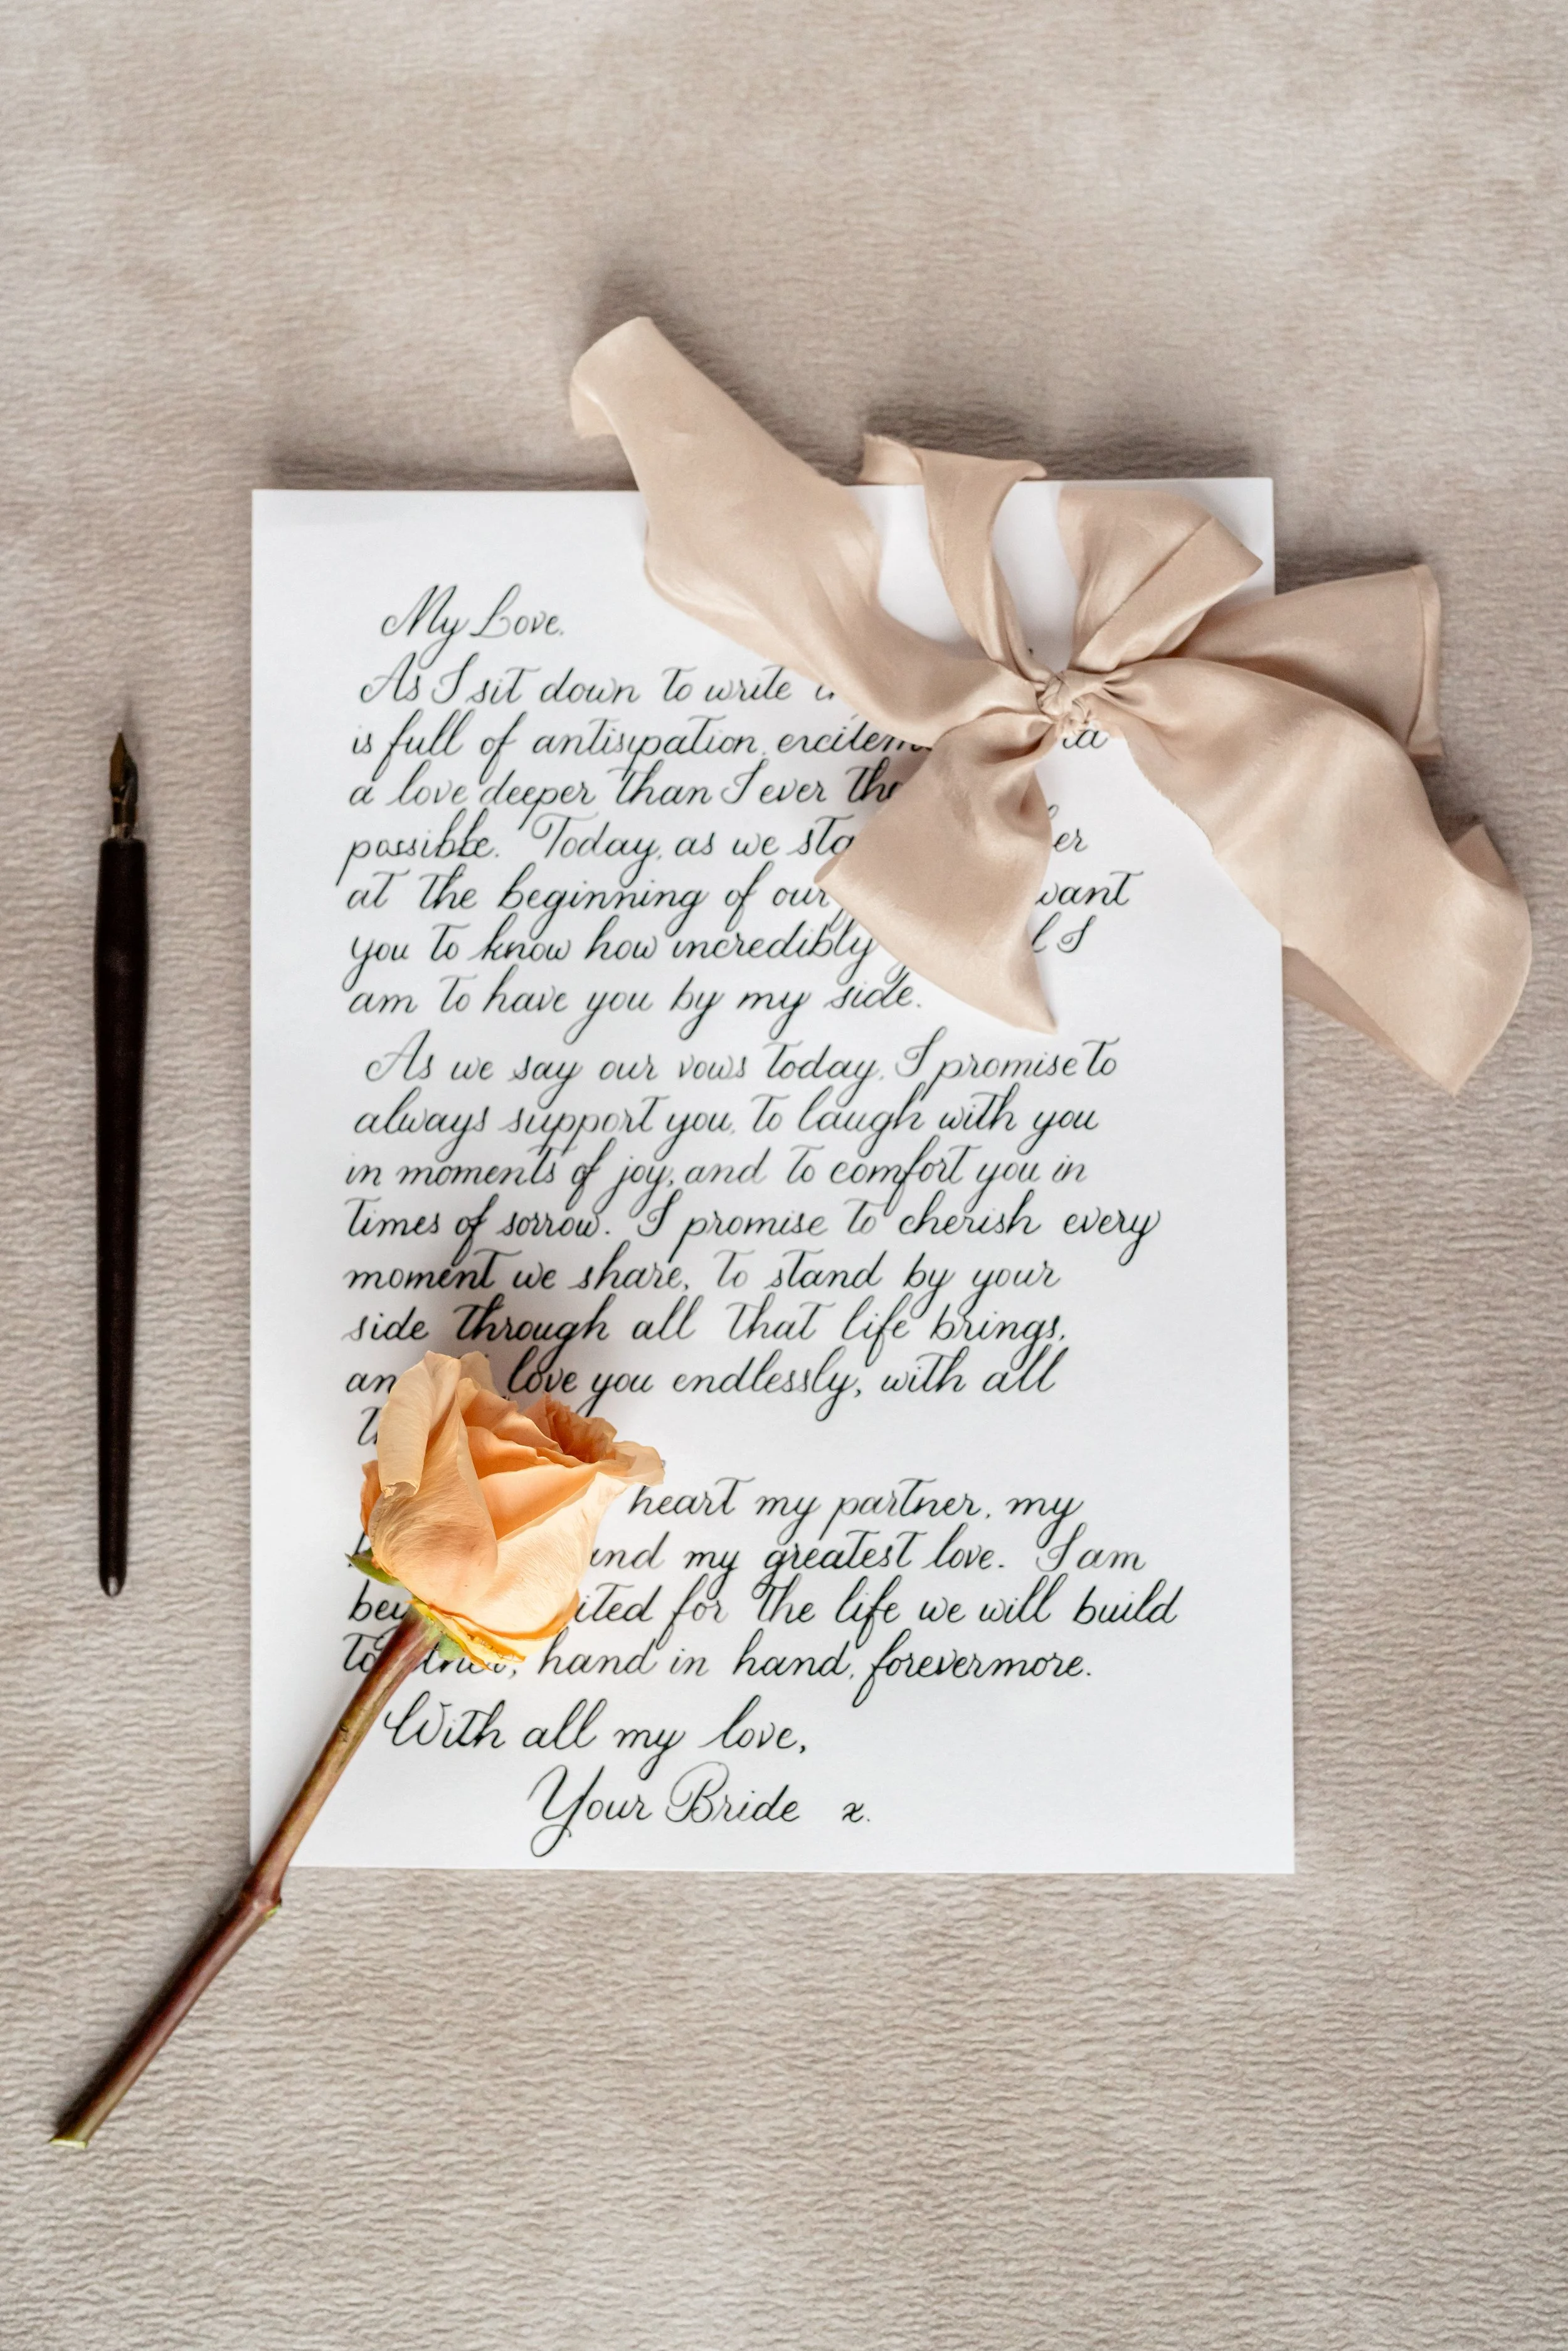 My Love,
As I sit down to write
is full of antisipation, excitem
a love deeper than I ever tho
possible. Today, as we sta er
at the beginning of our want
you to know how incredibly l I
am to have you by my side.
As we say our vows today, I promise to
always support you, to laugh with you
in moments of joy, and to comfort you in
times of sorrow. I promise to cherish every
moment we share, to stand by your
side through all that life brings,
an love you endlessly, with all
heart my partner, my
and my greatest love. I am
bey ited for the life we will build
together, hand in hand, forevermore.
With all my love,
Your Bride x.